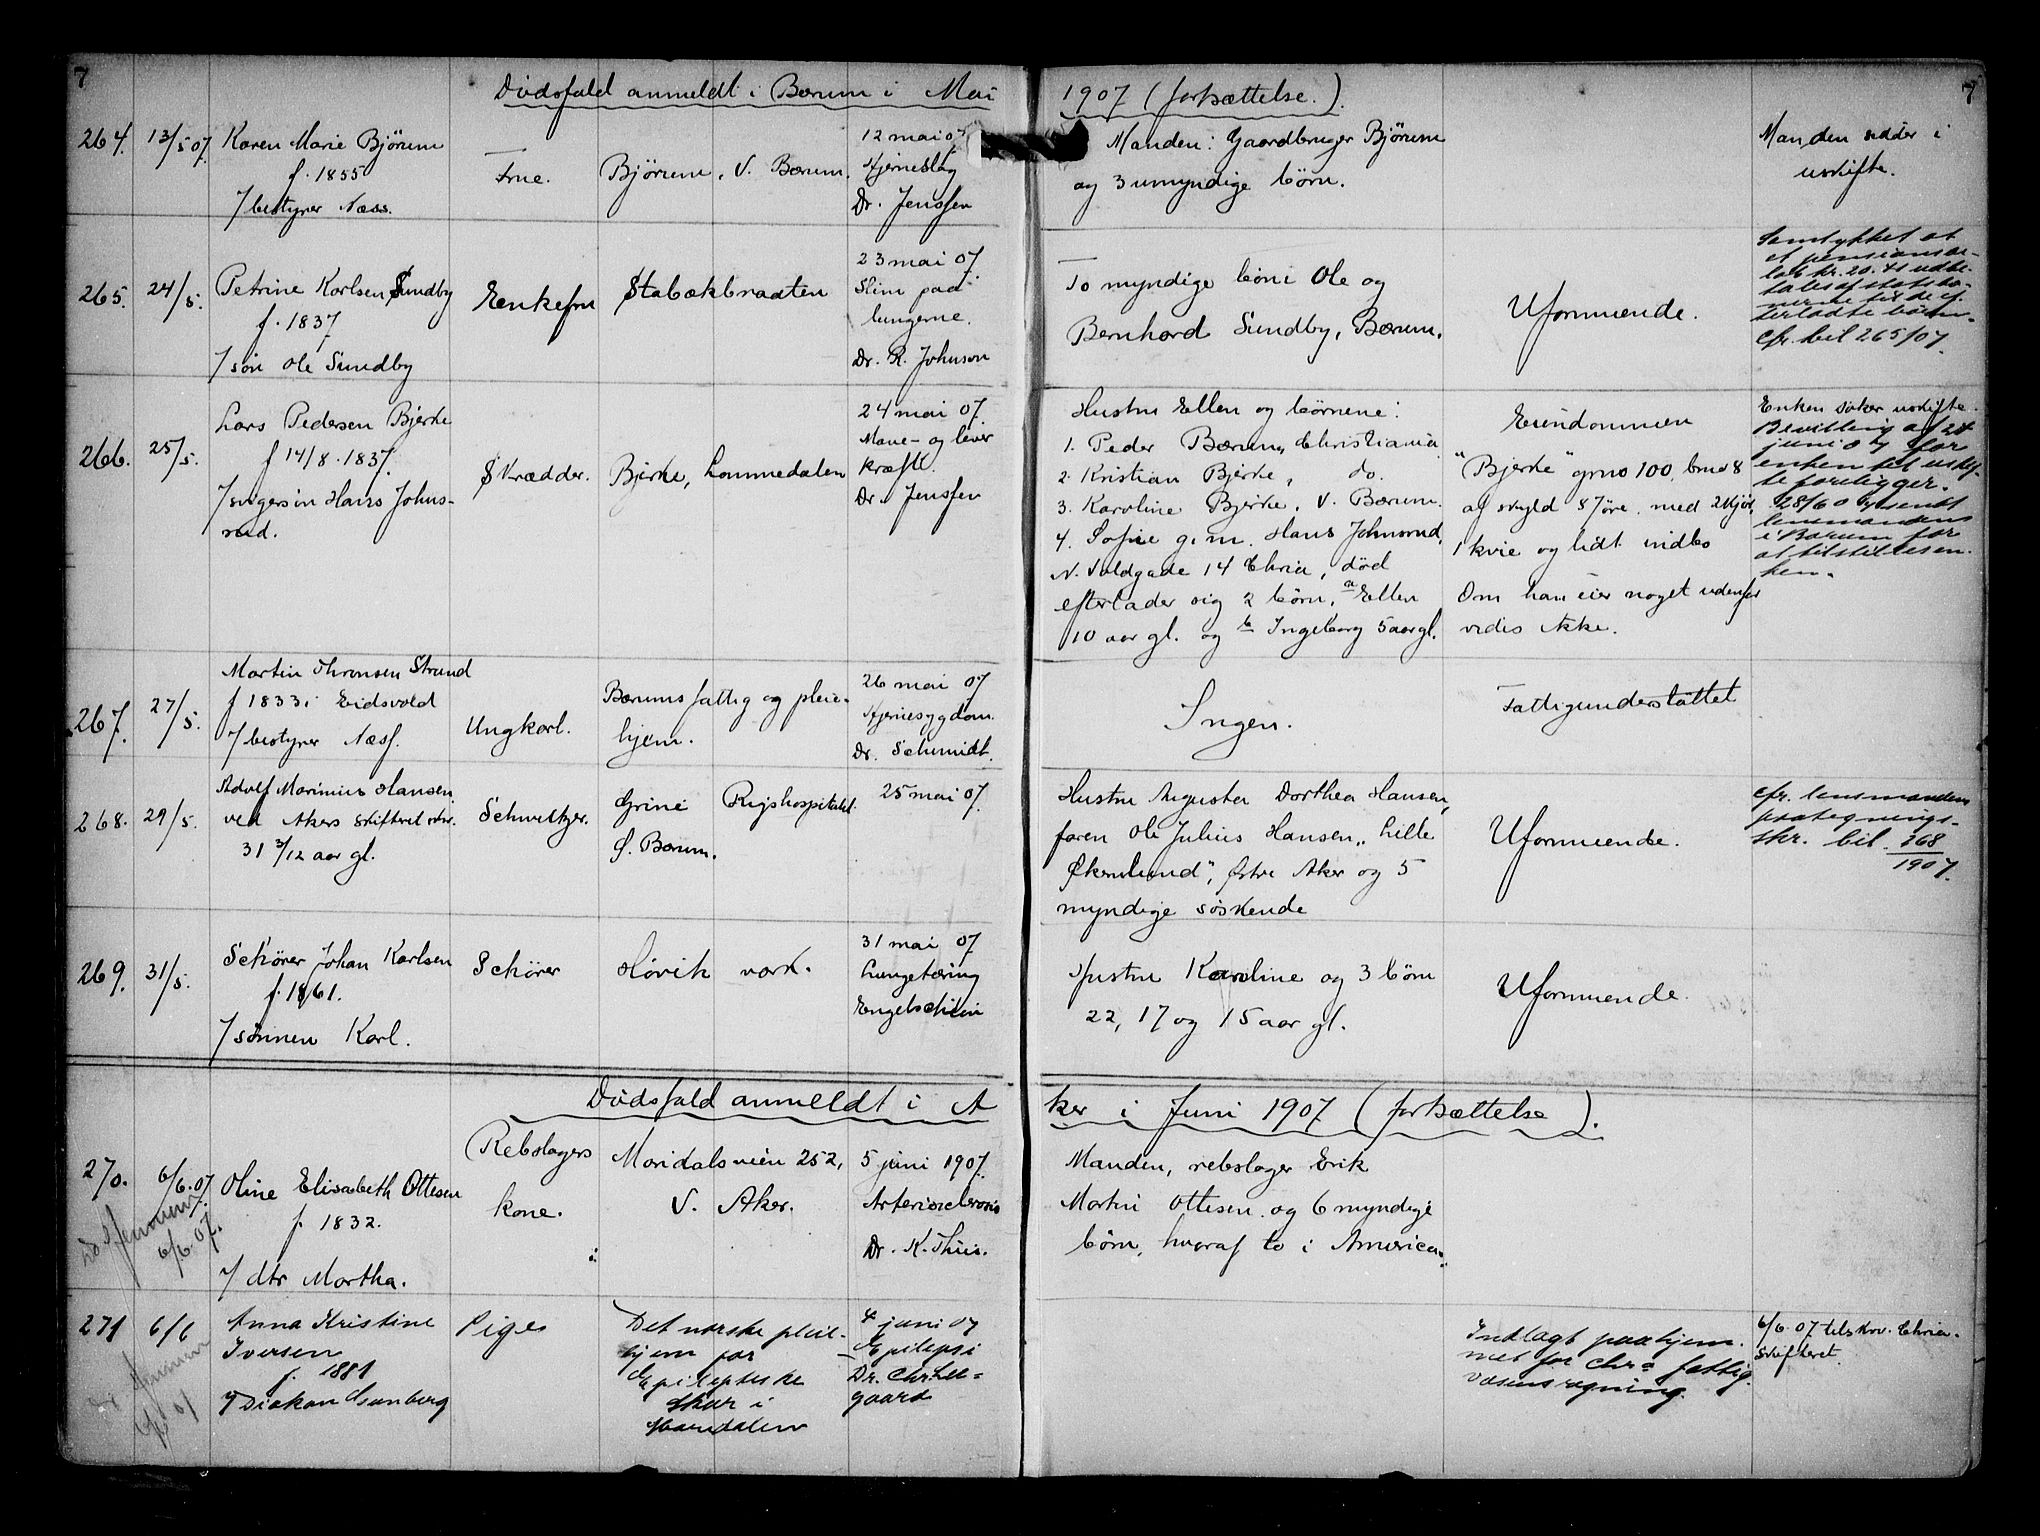 7
7
Dødsfald anmeldt i Bærum i Mai 1907 (fortsættelse.)
264. 13/5 07.
Karen Marie Bjørum
f. 1855
/ bestyrer Næss.
Frue.
Bjørum, V. Bærum.
12 mai 07
Hjerneslag
Dr. Jenssen
Manden: Gaardbruger Bjørum
og 3 umyndige børn.
Manden sidder i
uskifte.
265. 24/5.
Petrine Karlsen Sundby
f. 1837
/ søn Ole Sundby
Enkefru
Stabækbraaten
23 mai 07
Slim paa
lungerne.
Dr. R. Johnson
To myndige børn Ole og
Bernhard Sundby, Bærum.
Uformuende.
Samtykket at
et pensionsbe-
løb kr. 20.41 udbe-
tales af statsba-
nerne til de ef-
terladte børn.
Cfr. bil 265/07.
266. 25/5.
Lars Pedersen Bjerke
f 14/8. 1837.
/ svigersøn Hans Johns-
rud.
Skrædder.
Bjerke, Lommedalen
24 mai 07.
Mave- og lever
kræft.
Dr. Jenssen
Hustru Ellen og børnene:
1. Peder Bærum, Christiania
2. Kristian Bjerke, do.
3. Karoline Bjerke, V. Bærum.
4. Sofie g. m. Hans Johnsrud,
N. Voldgade 14 Chria, død
efterlader sig 2 børn, a Ellen
10 aar gl. og b Ingeborg 5 aar gl.
Eiendommen
"Bjerke" gno 100, bno 8
af skyld 87 øre. med 2 kjør,
1 kvie og lidt indbo
Om han eier noget udenfor
vides ikke.
Enken søker uskifte.
Bevilling af 24
juni 07 for
enken til uskif-
te foreligger.
28/6 07 sendt
lensmanden
i Bærum for
at tilstilles en-
ken.
267. 27/5.
Martin Thronsen Strand
f 1833 i Eidsvold
/ bestyrer Næss.
Ungkarl.
Bærums fattig og pleie-
hjem.
26 mai 07
Hjernesygdom.
Dr. Schmidt.
Ingen.
Fattigunderstøttet
268. 29/5.
Adolf Marinius Hansen
ved Akers skifteret skr.
31 3/12 aar gl.
Schweitzer.
Grini Rigshospitalet.
Ø. Bærum.
25 mai 07.
Hustru Augusta Dorthea Hansen,
faren Ole Julius Hansen, "Lille
Økernlund", Østre Aker og 5
myndige søskende
Uformuende.
Cfr. lensmandens
paategnings-
skr. bil. 268
1907.
269. 31/5.
Schörer Johan Karlsen
f. 1861.
/ sønnen Karl.
Schörer
Høvik verk.
31 mai 07
Lungetæring
Engelschiøn
Hustru Karoline og 3 børn
22, 17 og 15 aar gl.
Uformuende.
Dødsfald anmeldt i Aker i Juni 1907 (fortsættelse).
270. 6/6. 07.
6/6. 07.
Oline Elisabeth Ottesen
f. 1832.
/ dtr Martha.
Rebslagers
kone.
Maridalsveien 252,
V. Aker.
5 juni 1907.
Arteriosclerosis
Dr. K. Thiis.
Manden, rebslager Erik
Martin Ottesen og 6 myndige
børn, hvoraf to i America.
271 6/6
Anna Kristine
Iversen
f. 1881
/ Diakon
Pige
Det norske pleie-
hjem for
Epileptiske
Skar i
Maridalen
4 juni 07
Epilepsi
Dr. Christ-
gaard
Indlagt paa hjem-
met for Chra fattig-
væsens regning.
6/6. 07 tilskrv. Chria.
Skifteret.